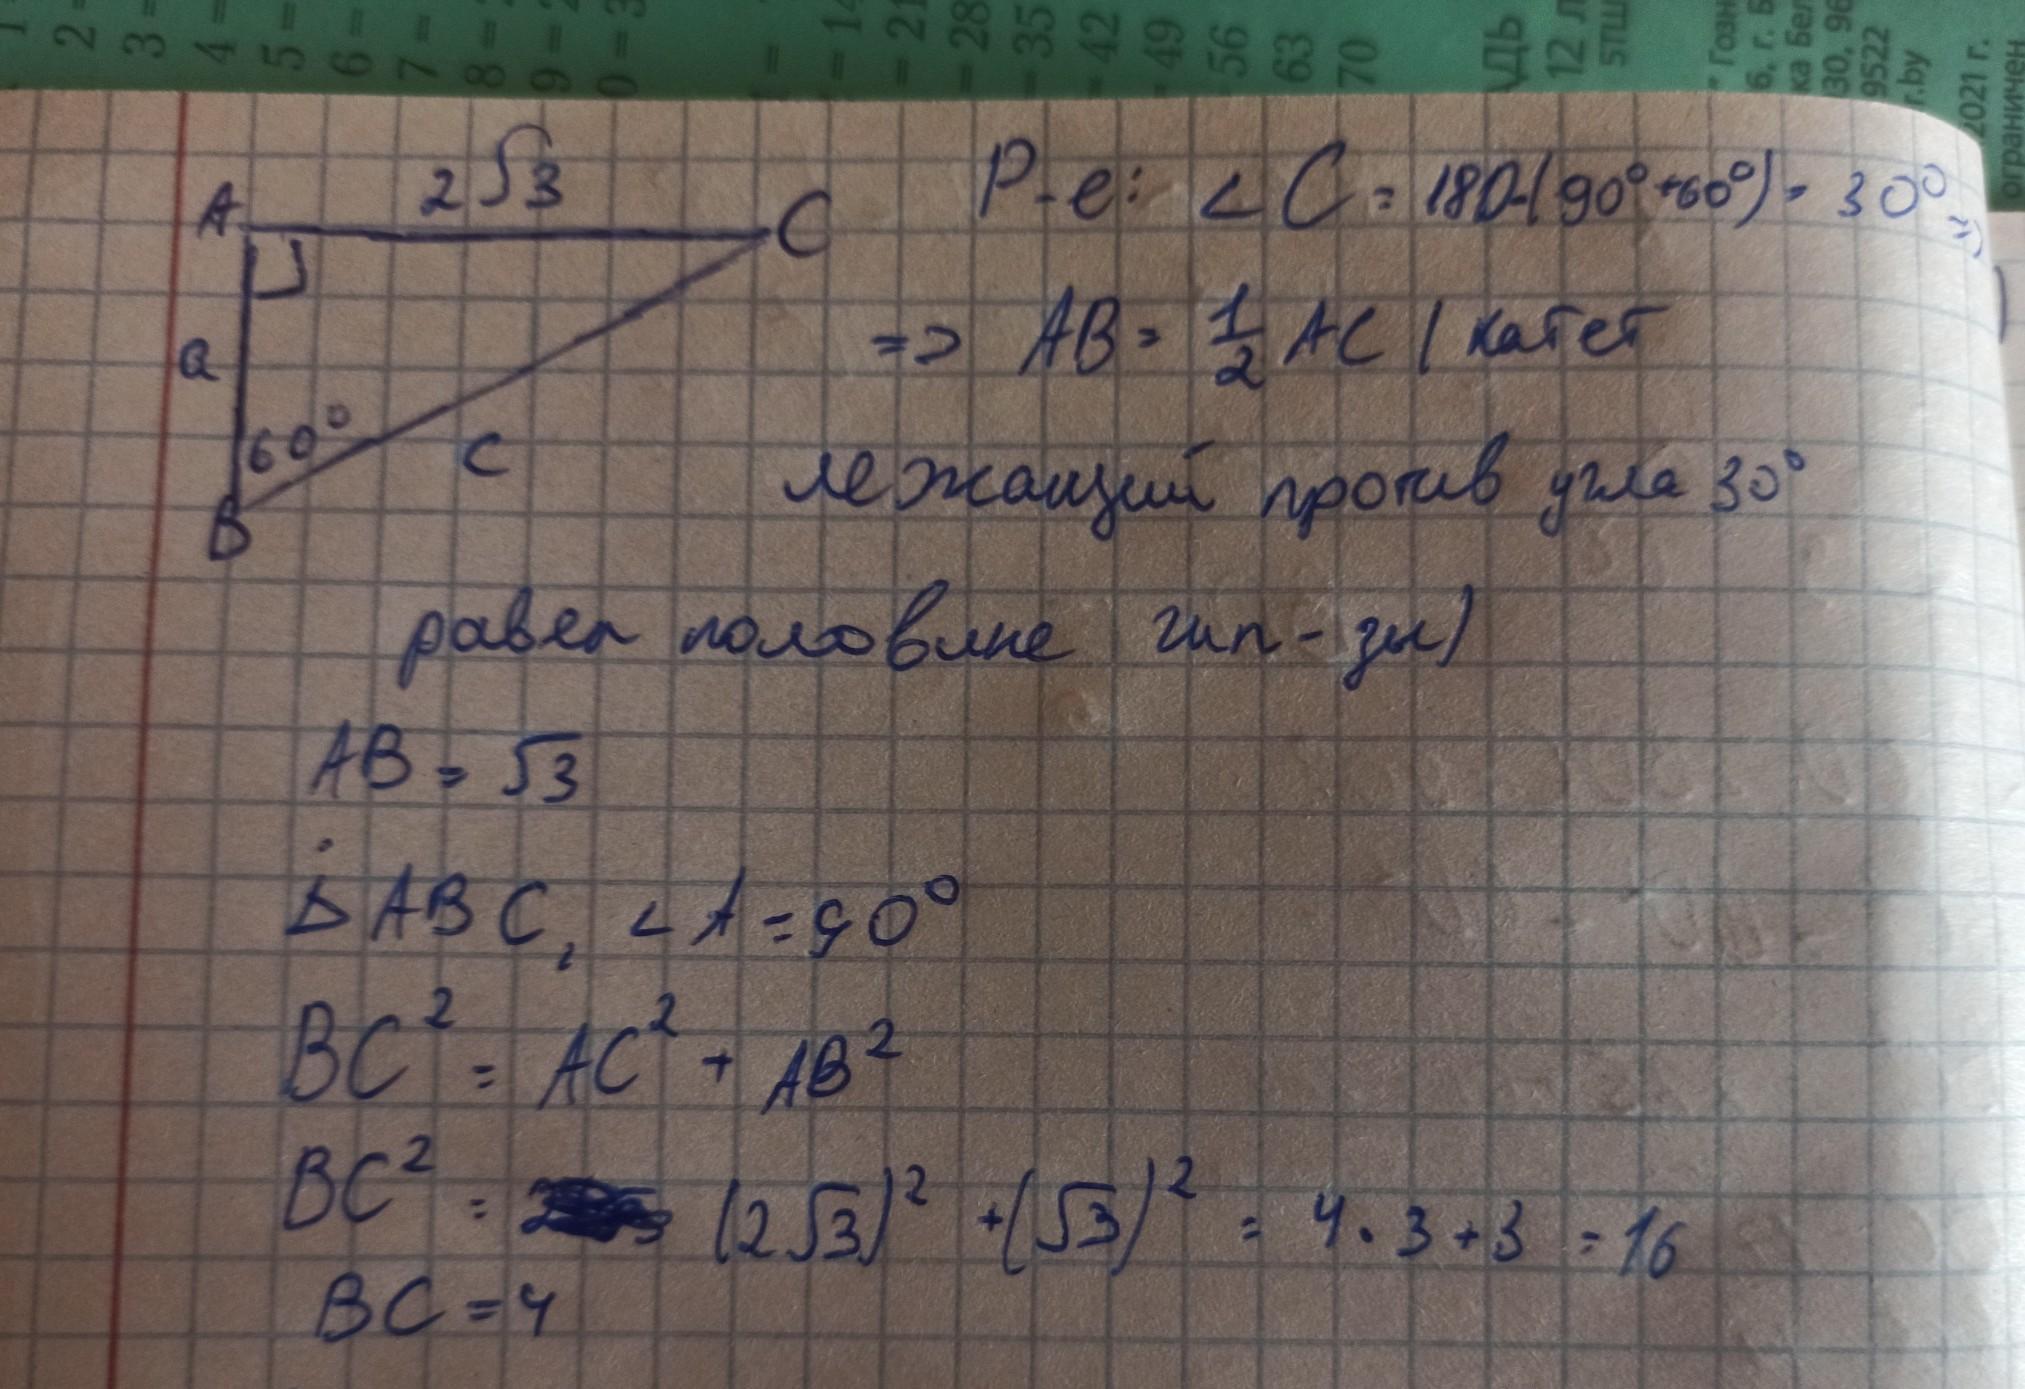 1
2 =
3 =
4 =
5 =
6 =
7 =
8 =
9 = 2
0 = 3
=
= 14
= 21
= 28
= 35
= 42
= 49
56
63
70
АДЬ
12 л
5ТШ
" Гозн
6, г. Б
ка Бел
30, 96
9522
r.by
2021 г.
ограничен
A 2√3 C
a
60°
c
B
Р-е: ∠C = 180-(90°+60°) = 30° =>
=> AB = 1/2 AC (катет
лежащий против угла 30°
равен половине гип-зы)
AB = √3
Δ ABC, ∠A = 90°
BC² = AC² + AB²
BC² = (2√3)² + (√3)² = 4 · 3 + 3 = 16
BC = 4